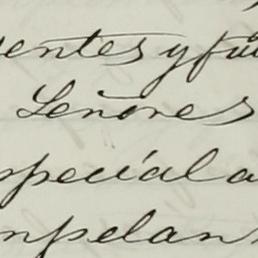 entes y fu
Señores
special a
mpelan